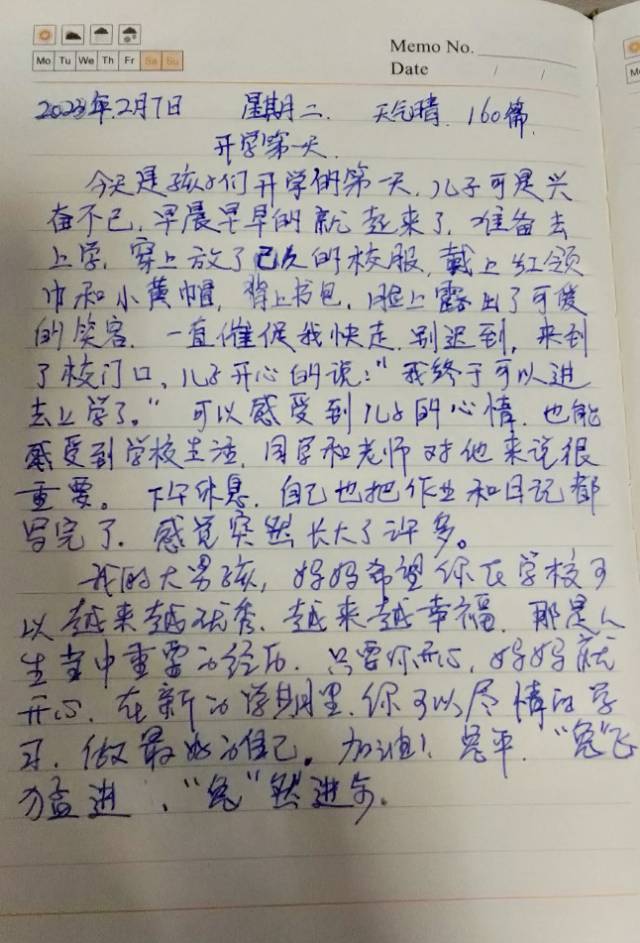 Mo Tu We Th Fr Sa Su
Memo No.
Date / /
2023年2月7日 星期二. 天气晴. 160篇.
开学第一天.
今天是孩子们开学的第一天, 儿子可是兴
奋不已, 早晨早早的就起来了, 准备去
上学, 穿上放了已久的校服, 戴上红领
巾和小黄帽, 背上书包, 脸上露出了可爱
的笑容. 一直催促我快走, 别迟到, 来到
了校门口, 儿子开心的说:"我终于可以进
去上学了。" 可以感受到儿子的心情, 也能
感受到学校生活, 同学和老师对他来说很
重要。下午休息, 自己也把作业和日记都
写完了. 感觉突然长大了许多。
我的大男孩, 妈妈希望你在学校可
以越来越优秀, 越来越幸福, 那是人
生当中重要的经历. 只要你开心, 妈妈就
开心, 在新的学期里, 你可以尽情的学
习, 做最好的自己。加油! 兔年, "兔"飞
猛进, "兔"然进步.